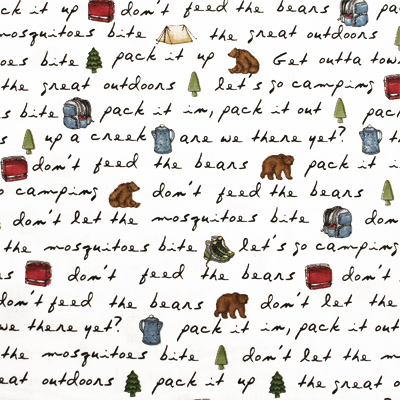 ck it up don't feed the bears pa
mosquitoes bite the great outdoors
oes bite pack it up Get outta tow
the great outdoors let's go camping
s bite pack it in, pack it out pack
s up a creek are we there yet? th
don't feed the bears pack it i
o camping don't feed the bears
don't let the mosquitoes bite don
the mosquitoes bite let's go camping
rs don't feed the bears don't
don't feed the bears don't let the
we there yet? pack it in, pack it out
the mosquitoes bite don't let the m
eat outdoors pack it up the great o